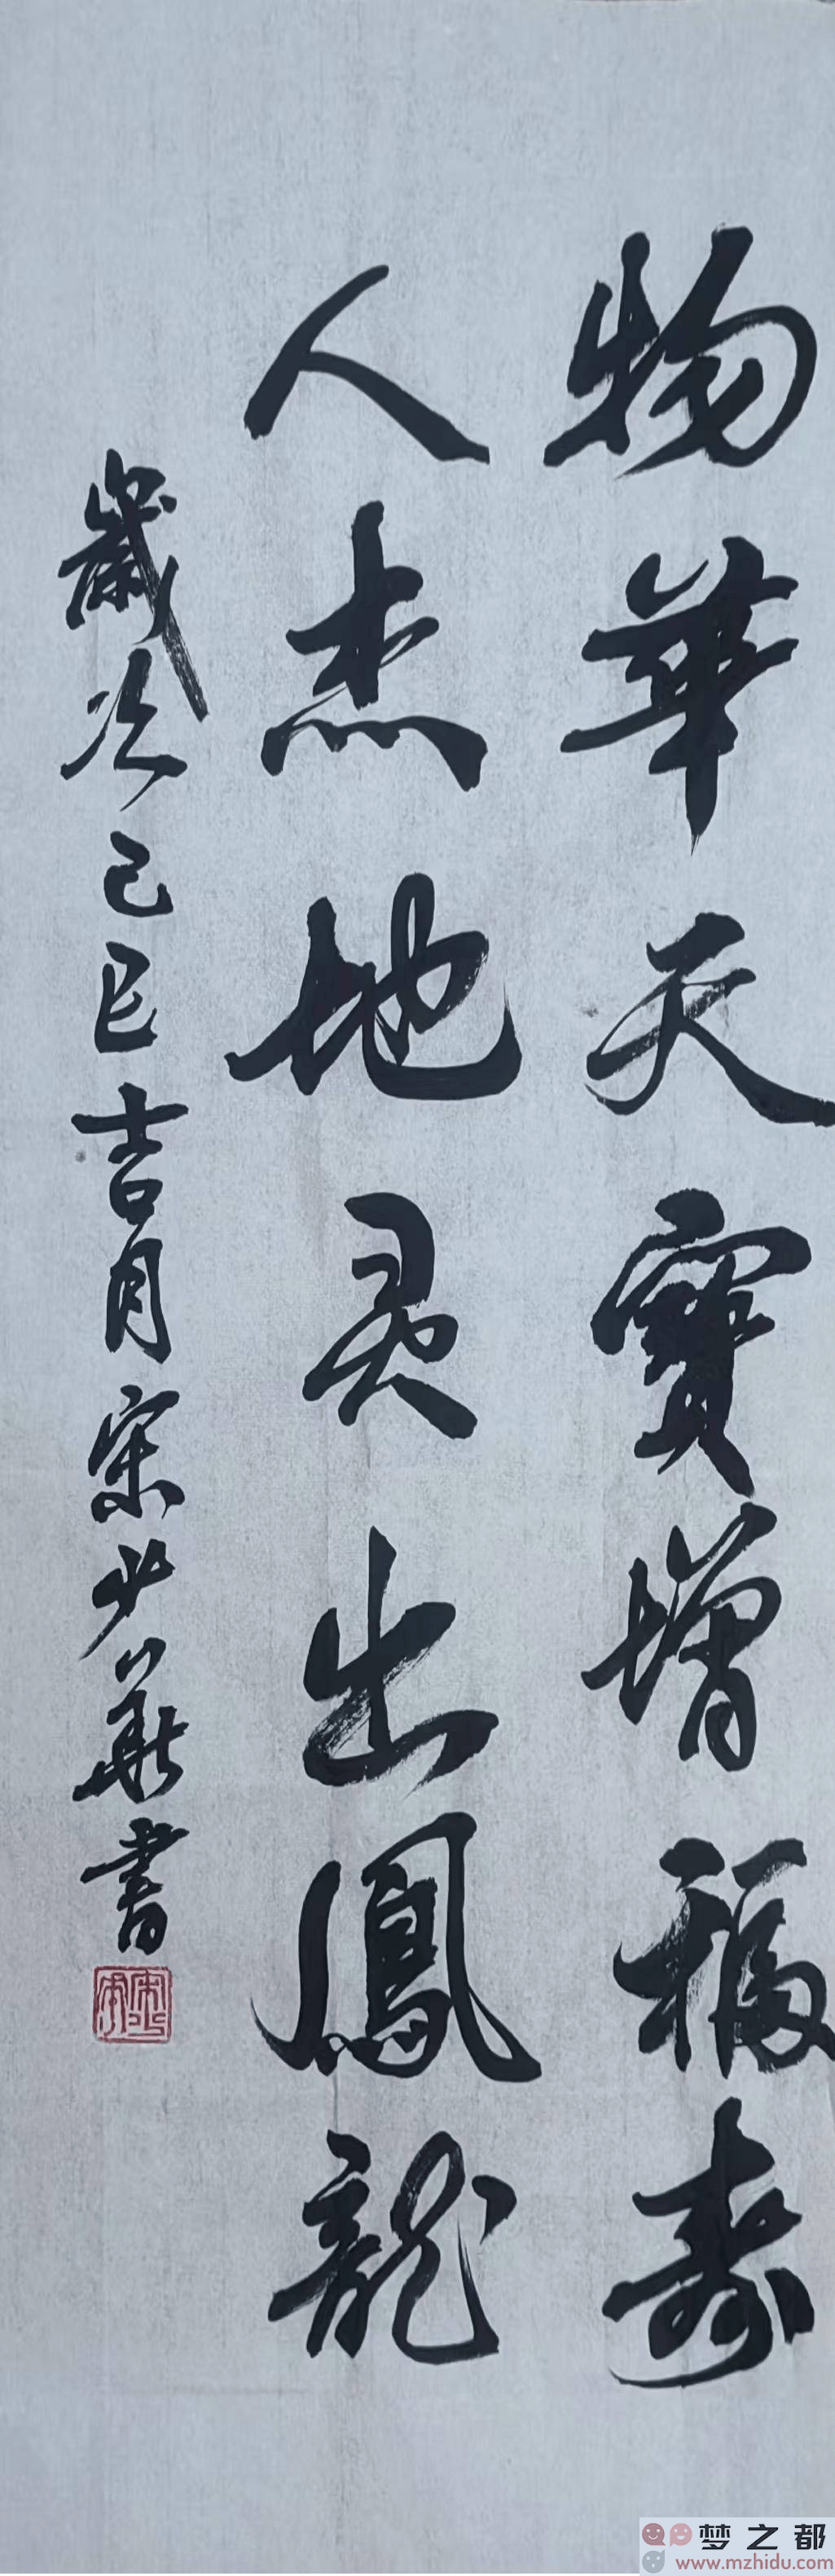 物華天寶增福寿
人杰地灵出鳳龍
歲次己巳吉月宋少華書
梦之都
www.mzhidu.com